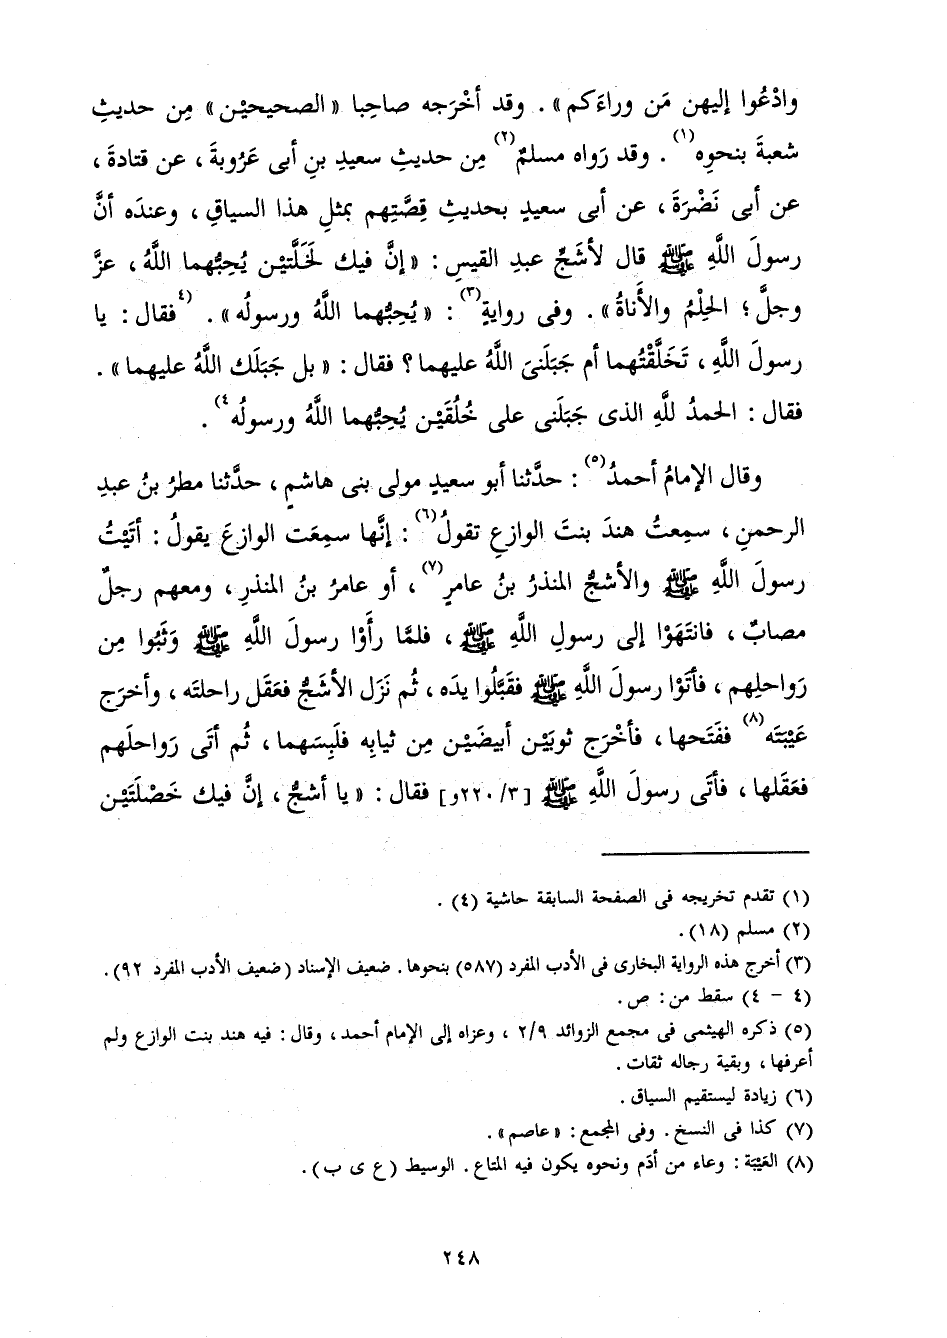 وادْعُوا إليهن مَن وراءَكم» . وقد أخْرَجه صاحِبا « الصحيحيْن » مِن حديثِ
شعبةَ بنحوِه(١) . وقد رَواه مسلمٌ(٢) مِن حديثِ سعيدِ بنِ أبى عَرُوبةَ ، عن قتادةَ ،
عن أبى نَضْرَةَ ، عن أبى سعيدٍ بحديثِ قِصَّتِهم بمثلِ هذا السياقِ ، وعندَه أنَّ
رسولَ اللَّهِ ﷺ قال لأشجِّ عبدِ القيسِ : « إنَّ فيك لَخَلَّتيْن يُحِبُّهما اللَّهُ ، عزَّ
وجلَّ ؛ الحِلْمُ والأَناةُ» . وفى روايةٍ(٣) : « يُحِبُّهما اللَّهُ ورسولُه» . (٤فقال : يا
رسولَ اللَّهِ ، تَخَلَّقْتُهما أم جَبَلَنىَ اللَّهُ عليهما ؟ فقال : « بل جَبَلَك اللَّهُ عليهما » .
فقال : الحمدُ للَّهِ الذى جَبَلَنى على خُلُقَيْن يُحِبُّهما اللَّهُ ورسولُه٤) .
وقال الإمامُ أحمدُ(٥) : حدَّثنا أبو سعيدٍ مولى بنى هاشمٍ ، حدَّثنا مطرُ بنُ عبدِ
الرحمنِ ، سمِعتُ هندَ بنتَ الوازعِ تقولُ(٦) : إنَّها سمِعَت الوازعَ يقولُ : أتَيْتُ
رسولَ اللَّهِ ﷺ والأشجُّ المنذرُ بنُ عامرٍ(٧) ، أو عامرُ بنُ المنذرِ ، ومعهم رجلٌ
مصابٌ ، فانتَهَوْا إلى رسولِ اللَّهِ ﷺ ، فلمَّا رأَوْا رسولَ اللَّهِ ﷺ وَثَبُوا مِن
رَواحلِهم ، فأتَوْا رسولَ اللَّهِ ﷺ فقَبَّلُوا يدَه ، ثُم نَزَل الأشَجُّ فعَقَل راحلتَه ، وأخرَج
عَيْبَتَه(٨) ففَتَحها ، فأخْرَج ثوبَيْن أبيضَيْن مِن ثيابِه فلَبِسَهما ، ثُم أتَى رَواحلَهم
فعَقَلها ، فأتَى رسولَ اللَّهِ ﷺ [٣/ ٢٢٠و] فقال : « يا أشجُّ ، إنَّ فيك خَصْلَتَيْن
(١) تقدم تخريجه فى الصفحة السابقة حاشية (٤) .
(٢) مسلم (١٨) .
(٣) أخرج هذه الرواية البخارى فى الأدب المفرد (٥٨٧) بنحوها . ضعيف الإسناد (ضعيف الأدب المفرد ٩٢) .
(٤ - ٤) سقط من : ص .
(٥) ذكره الهيثمى فى مجمع الزوائد ٢/٩ ، وعزاه إلى الإمام أحمد ، وقال : فيه هند بنت الوازع ولم
أعرفها ، وبقية رجاله ثقات .
(٦) زيادة ليستقيم السياق .
(٧) كذا فى النسخ . وفى المجمع : « عاصم » .
(٨) العَيْبَة : وعاء من أدَم ونحوه يكون فيه المتاع . الوسيط (ع ى ب) .
٢٤٨